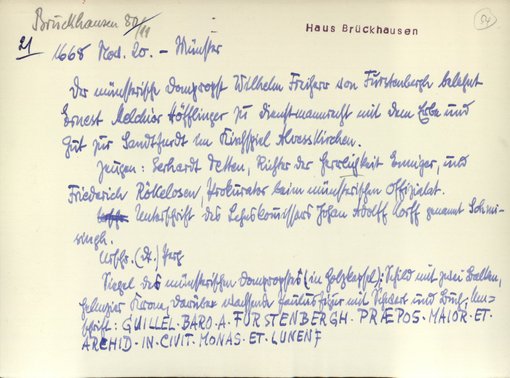 Brückhausen 80/11
Haus Brückhausen
21 1668 Nov. 20. - Münster
Der münsterische Dompropst Wilhelm Freiherr von Fürstenbergh belehnt
Ernest Melchior Höfflinger zu Dienstmannrecht mit dem Erbe und
Gut zur Sandtfurdt im Kirchspiel Alverskirchen.
Zeugen: Gerhardt Detten, Richter der Herrligkeit Enniger, und
Friederich Röttelosen, Prokurator beim münsterischen Offizialat.
Unterschrift des Lehnskommissars Johan Adolff Korff genannt Schmi-
singh.
Urschr. (dt.) Perg.
Siegel des münsterischen Dompropstes (in Holzkapsel): Schild mit zwei Balken,
Helmzier Krone, darüber wachsende Paulusfigur mit Schwert und Buch, Um-
schrift: GUILLEL·BARO·A·FURSTENBERGH·PRÆPOS·MAIOR·ET·
ARCHID·IN·CIVIT·MONAS·ET·LUNENS